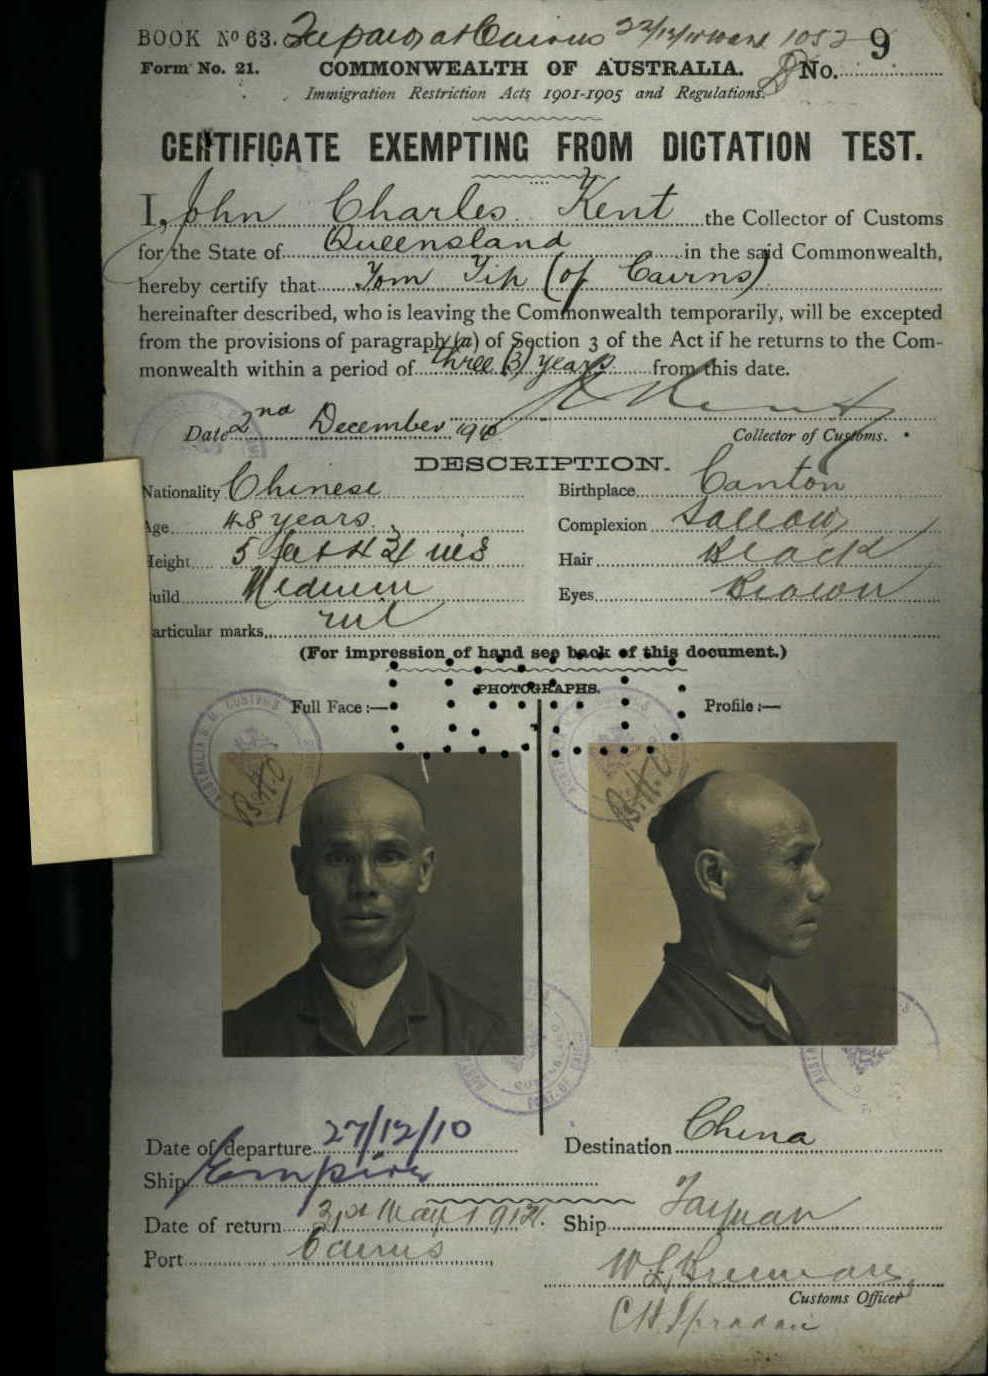 BOOK No 63. at Cairns 9
Form No. 21. COMMONWEALTH OF AUSTRALIA. No.
Immigration Restriction Acts 1901-1905 and Regulations.
CERTIFICATE EXEMPTING FROM DICTATION TEST.
I, John Charles Kent the Collector of Customs
for the State of Queensland in the said Commonwealth,
hereby certify that Tom Yip (of Cairns)
hereinafter described, who is leaving the Commonwealth temporarily, will be excepted
from the provisions of paragraph (a) of Section 3 of the Act if he returns to the Com-
monwealth within a period of three (3) years from this date.
Kent
Date 2nd December 1910 Collector of Customs.
DESCRIPTION.
Nationality Chinese Birthplace Canton
Age 48 years. Complexion Sallow
Height 5 feet 4 3/4 ins Hair Black
Build Medium Eyes Brown
Particular marks nil
(For impression of hand see back of this document.)
PHOTOGRAPHS.
Full Face :— Profile :—
Date of departure 27/12/10 Destination China
Ship Empire
Date of return 31st May 1912. Ship Taiyuan
Port Cairns
Customs Officer